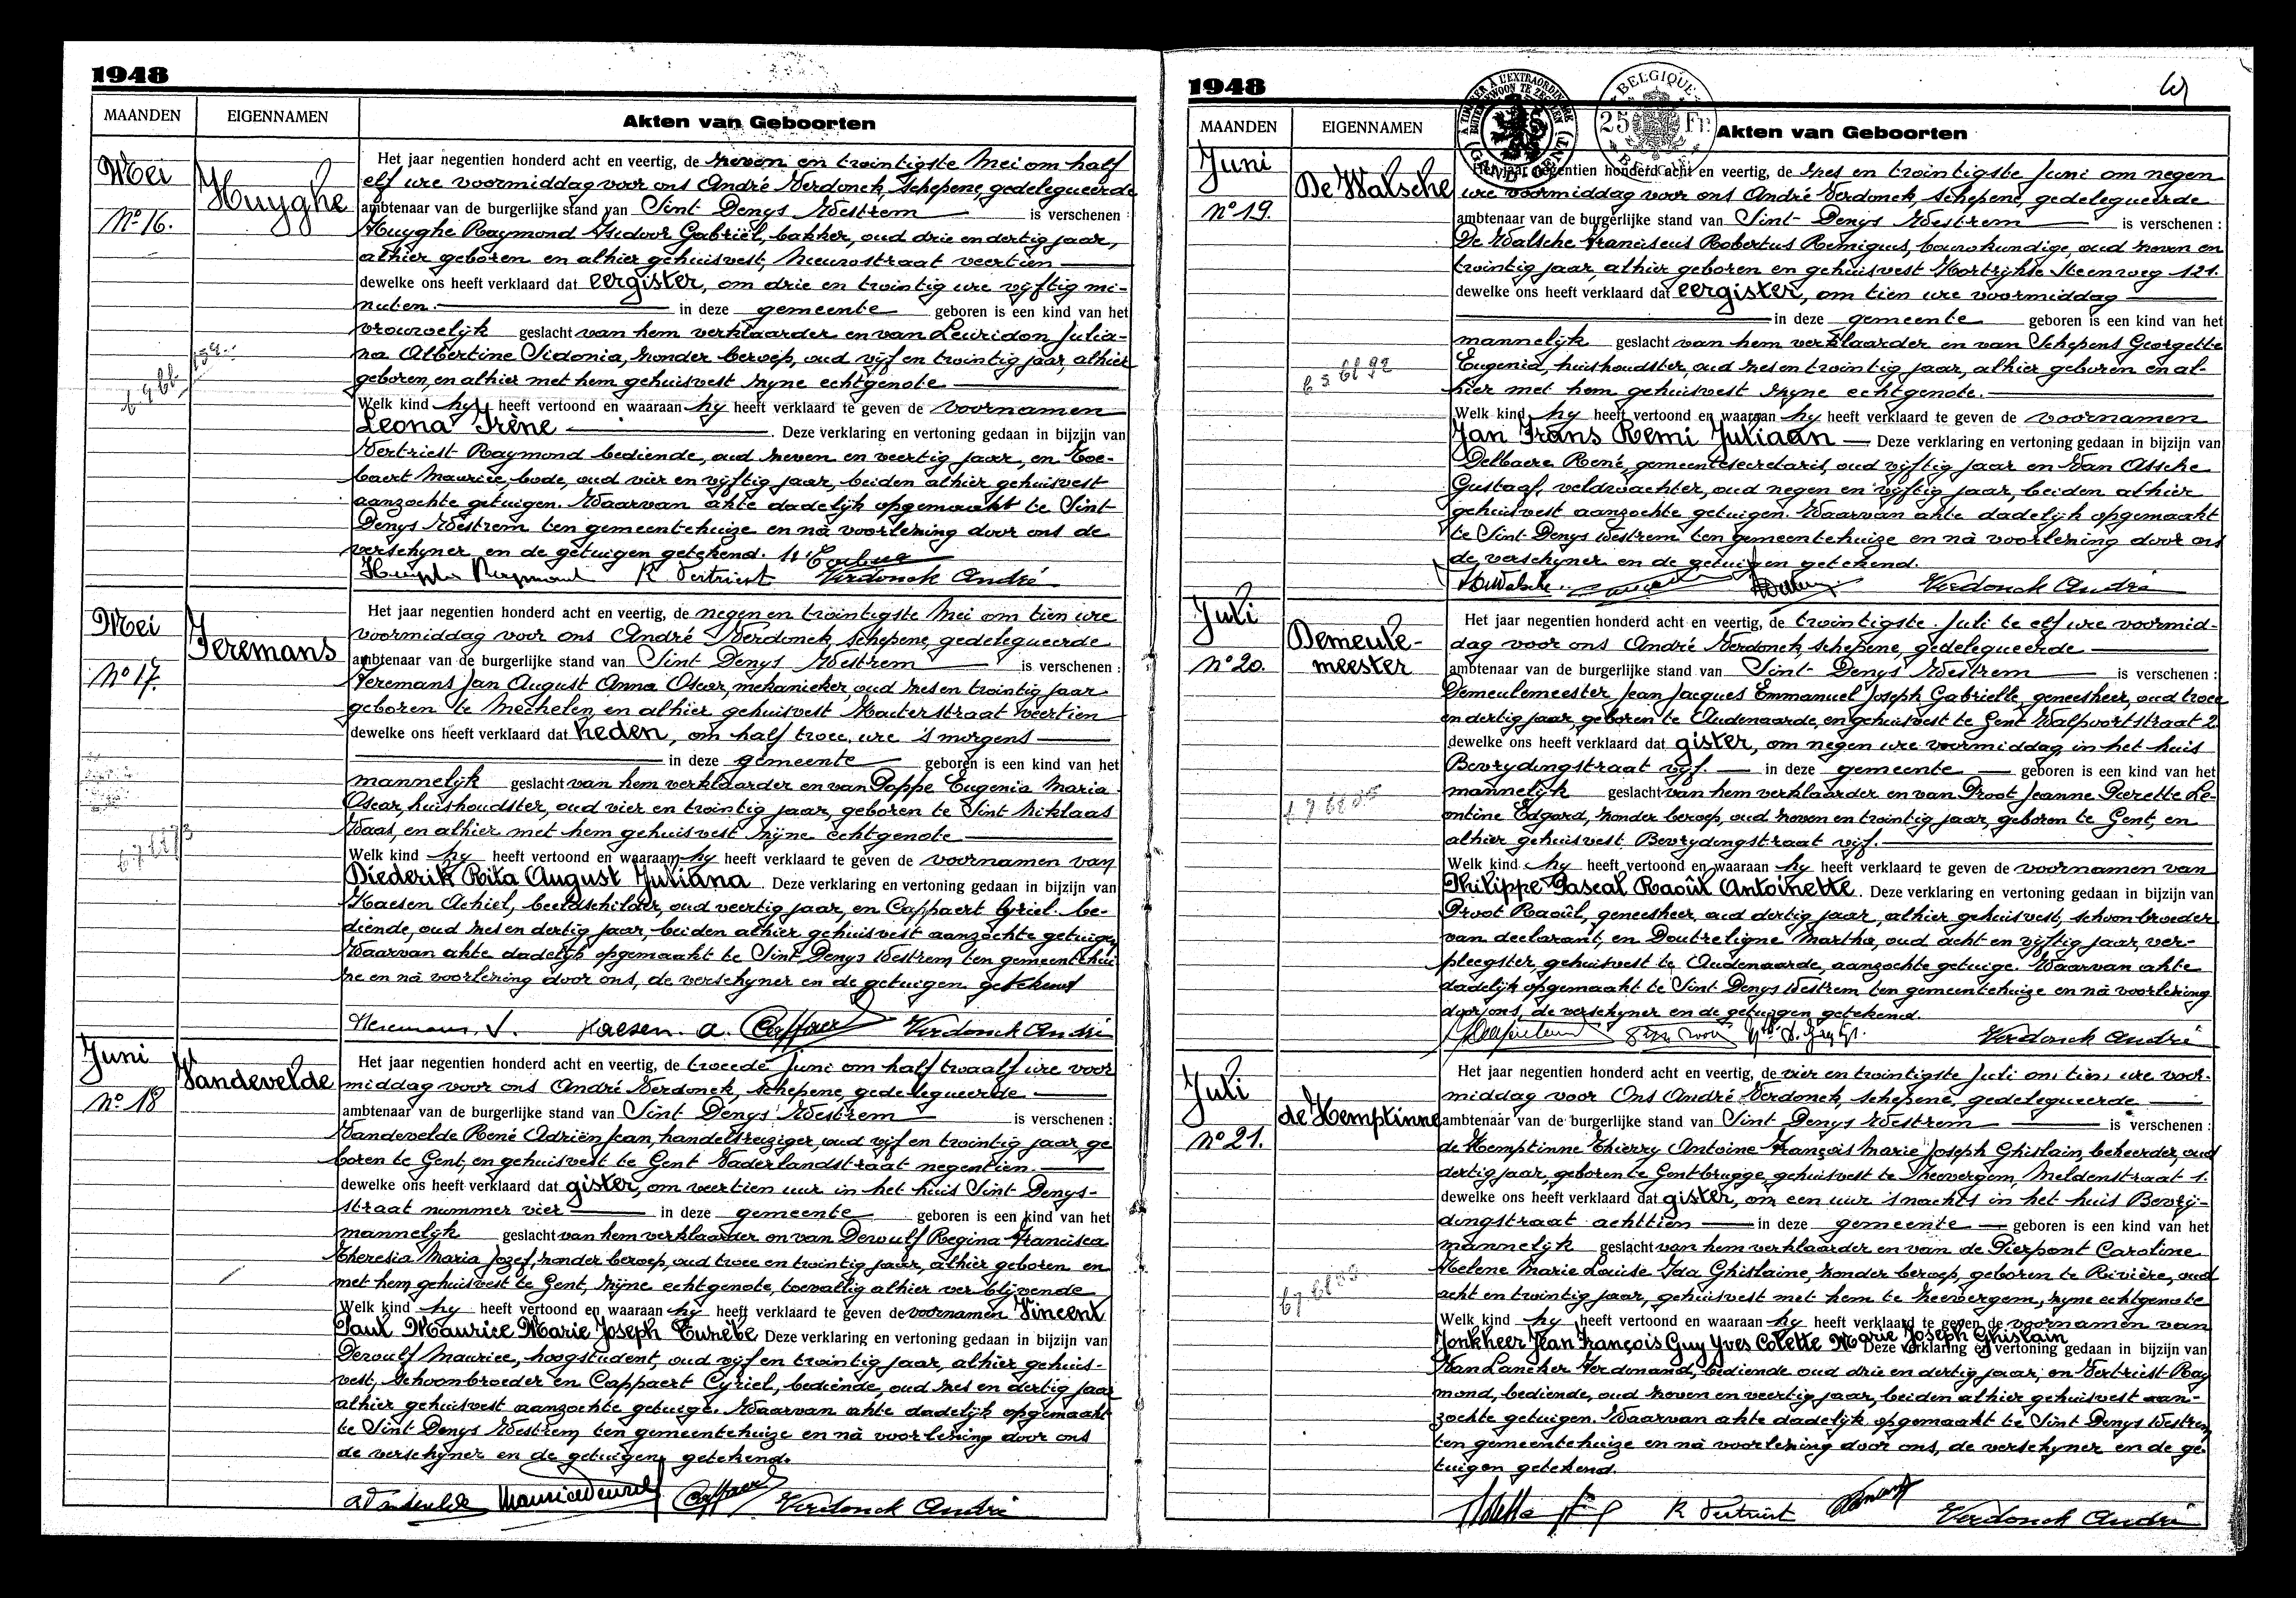 1948
MAANDEN
EIGENNAMEN
Akten van Geboorten
Mei
No 16.
Huyghe
Het jaar negentien honderd acht en veertig, de zeven en twintigste Mei om half
elf ure voormiddag voor ons André Verdonck, schepene, gedelegueerde
ambtenaar van de burgerlijke stand van Sint Denys Westrem is verschenen :
Huyghe Raymond Isidoor Gabriël, bakker, oud drie en dertig jaar,
alhier geboren en alhier gehuisvest, Nieuwstraat veertien
dewelke ons heeft verklaard dat eergister, om drie en twintig ure vijftig mi-
nuten. in deze gemeente geboren is een kind van het
vrouwelijk geslacht van hem verklaarder en van Leuridon Julia-
na Albertine Sidonia, zonder beroep, oud vijf en twintig jaar, alhier
geboren, en alhier met hem gehuisvest zyne echtgenote
Welk kind hy heeft vertoond en waaraan hy heeft verklaard te geven de voornamen
Leona Irène . Deze verklaring en vertoning gedaan in bijzijn van
Vertriest Raymond bediende, oud zeven en veertig jaar, en
Maurice, bode, oud vier en vijftig jaar, beiden alhier gehuisvest
aanzochte getuigen. Waarvan akte dadelijk opgemaakt te Sint
Denys Westrem ten gemeentehuize en nà voorlezing door ons de
verschyner en de getuigen getekend.
Huyghe Raymond R Vertriest Verdonck André
Mei
No 17.
Heremans
Het jaar negentien honderd acht en veertig, de negen en twintigste Mei om tien ure
voormiddag voor ons André Verdonck, schepene, gedelegueerde
ambtenaar van de burgerlijke stand van Sint Denys Westrem is verschenen :
Heremans Jan August Anna Oscar, mekanieker, oud zes en twintig jaar
geboren te Mechelen, en alhier gehuisvest Kouterstraat veertien
dewelke ons heeft verklaard dat heden, om half twee, ure 's morgens
in deze gemeente geboren is een kind van het
mannelijk geslacht van hem verklaarder en van Poppe Eugenia Maria
Oscar, huishoudster, oud vier en twintig jaar, geboren te Sint Niklaas
Waas, en alhier met hem gehuisvest zijne echtgenote
Welk kind hy heeft vertoond en waaraan hy heeft verklaard te geven de voornamen van
Diederik Rita August Juliana . Deze verklaring en vertoning gedaan in bijzijn van
Haesen Achiel, beeldschilder, oud veertig jaar, en Cappaert Cyriel be-
diende, oud zes en dertig jaar, beiden alhier gehuisvest aanzochte getuigen
Waarvan akte dadelijk opgemaakt te Sint Denys Westrem ten gemeentehui
ze en nà voorlezing door ons, de verschyner en de getuigen getekend
Heremans J. Haesen. A. Cappaert Verdonck André
Juni
No 18
Vandevelde
Het jaar negentien honderd acht en veertig, de tweede Juni om half twaalf ure voor
middag voor ons André Verdonck, schepene, gedelegueerde
ambtenaar van de burgerlijke stand van Sint Denys Westrem is verschenen :
Vandevelde René Adriën Jean, handelsreiziger, oud vijf en twintig jaar, ge
boren te Gent, en gehuisvest te Gent Vaderlandstraat negentien.
dewelke ons heeft verklaard dat gister, om veertien uur in het huis Sint Denys-
straat nummer vier in deze gemeente geboren is een kind van het
mannelijk geslacht van hem verklaarder en van Dewulf Regina Francisca
Theresia Maria Jozef, zonder beroep, oud twee en twintig jaar, alhier geboren en
met hem gehuisvest te Gent, zijne echtgenote, toevallig alhier verblijvende
Welk kind hy heeft vertoond en waaraan hy heeft verklaard te geven de voornamen Vincent
Paul Maurice Marie Joseph Eusèbe Deze verklaring en vertoning gedaan in bijzijn van
Dewulf Maurice, hoogstudent, oud vijf en twintig jaar, alhier gehuis-
vest, schoonbroeder en Cappaert Cyriel, bediende, oud zes en dertig jaar
alhier gehuisvest aanzochte getuige. Waarvan akte dadelijk opgemaakt
te Sint Denys Westrem ten gemeentehuize en nà voorlezing door ons
de verschyner en de getuigen getekend.
Maurice Dewulf Cappaert Verdonck André
1948
BELGIQUE
25 Fr
BELGIË
MAANDEN
EIGENNAMEN
Akten van Geboorten
Juni
No 19.
De Walsche
Het jaar negentien honderd acht en veertig, de zes en twintigste Juni om negen
ure voormiddag voor ons André Verdonck, schepene, gedelegueerde
ambtenaar van de burgerlijke stand van Sint Denys Westrem is verschenen :
De Walsche Franciscus Robertus Remigius, bouwkundige, oud zeven en
twintig jaar, alhier geboren en gehuisvest Kortrijkse Steenweg 121.
dewelke ons heeft verklaard dat eergister, om tien ure voormiddag
in deze gemeente geboren is een kind van het
mannelijk geslacht van hem verklaarder en van Schepens Georgette
Eugenia, huishoudster, oud zes en twintig jaar, alhier geboren en al-
hier met hem gehuisvest zyne echtgenote.
Welk kind hy heeft vertoond en waaraan hy heeft verklaard te geven de voornamen
Jan Frans Remi Juliaan Deze verklaring en vertoning gedaan in bijzijn van
Delbaere René, gemeentesecretaris, oud vijftig jaar en Van Assche
Gustaaf, veldwachter, oud negen en vijftig jaar, beiden alhier
gehuisvest aanzochte getuigen. Waarvan akte dadelijk opgemaakt
te Sint Denys Westrem ten gemeentehuize en nà voorlezing door ons
de verschyner en de getuigen getekend.
Verdonck André
Juli
No 20.
Demeule-
meester
Het jaar negentien honderd acht en veertig, de twintigste Juli te elf ure voormid-
dag voor ons André Verdonck, schepene, gedelegueerde
ambtenaar van de burgerlijke stand van Sint Denys Westrem is verschenen :
Demeulemeester Jean Jacques Emmanuel Joseph Gabrielle, geneesheer, oud twee
en dertig jaar, geboren te Audenaarde, en gehuisvest te Gent Walpoortstraat 2
dewelke ons heeft verklaard dat gister, om negen ure voormiddag in het huis
Bevrydingstraat vijf. in deze gemeente geboren is een kind van het
mannelijk geslacht van hem verklaarder en van Proot Jeanne Pierette Le-
ontine Edgard, zonder beroep, oud zeven en twintig jaar, geboren te Gent, en
alhier gehuisvest Bevrydingstraat vijf.
Welk kind hy heeft vertoond en waaraan hy heeft verklaard te geven de voornamen van
Philippe Pascal Raoûl Antoinette. Deze verklaring en vertoning gedaan in bijzijn van
Proot Raoûl, geneesheer, oud dertig jaar, alhier gehuisvest, schoonbroeder
van declarant, en Doutreligne Martha, oud acht en vijftig jaar, ver-
pleegster, gehuisvest te Audenaarde, aanzochte getuige. Waarvan akte
dadelijk opgemaakt te Sint Denys Westrem ten gemeentehuize en nà voorlezing
door ons, de verschyner en de getuigen getekend.
Verdonck André
Juli
No 21.
de Hemptinne
Het jaar negentien honderd acht en veertig, de vier en twintigste Juli om tien ure voor-
middag voor Ons André Verdonck, schepene, gedelegueerde
ambtenaar van de burgerlijke stand van Sint Denys Westrem is verschenen :
de Hemptinne Thierry Antoine François Marie Joseph Ghislain, beheerder, oud
dertig jaar, geboren te Gentbrugge, gehuisvest te Heevergem, Meldenstraat 1.
dewelke ons heeft verklaard dat gister, om een uur 's nachts in het huis Bevrij-
dingstraat achttien in deze gemeente geboren is een kind van het
mannelijk geslacht van hem verklaarder en van de Pierpont Caroline
Helene Marie Louise Ida Ghislaine, zonder beroep, geboren te Rivière, oud
acht en twintig jaar, gehuisvest met hem te Heevergem, zyne echtgenote
Welk kind hy heeft vertoond en waaraan hy heeft verklaard te geven de voornamen van
Jonkheer Jean François Guy Yves Colette Marie Joseph Ghislain
Deze verklaring en vertoning gedaan in bijzijn van
Van Lancker Ferdinand, bediende oud drie en dertig jaar, en Vertriest Ray
mond, bediende, oud zeven en veertig jaar, beiden alhier gehuisvest aan-
zochte getuigen. Waarvan akte dadelijk opgemaakt te Sint Denys Westrem
ten gemeentehuize en nà voorlezing door ons, de verschyner en de ge-
tuigen getekend.
R Vertriest Verdonck André